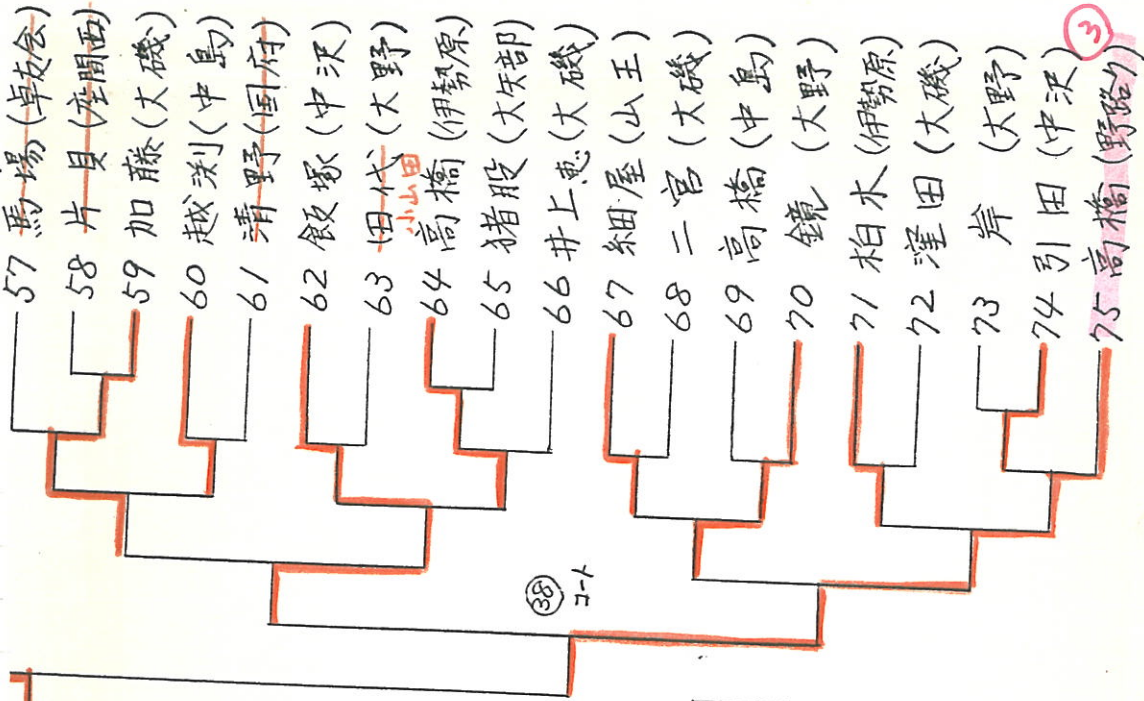 57 馬場 (卓友会)
58 片貝 (座間西)
59 加藤 (大磯)
60 越渕 (中島)
61 清野 (国府)
62 飯塚 (中沢)
63 田代 (大野)
小山田
64 高橋 (伊勢原)
65 猪股 (大矢部)
66 井上恵 (大磯)
67 細屋 (山王)
68 二宮 (大磯)
69 高橋 (中島)
70 鏡 (大野)
71 柏木 (伊勢原)
72 窪田 (大磯)
73 岸 (大野)
74 引田 (中沢)
75 高橋 (野路り)
③
㊳ コート